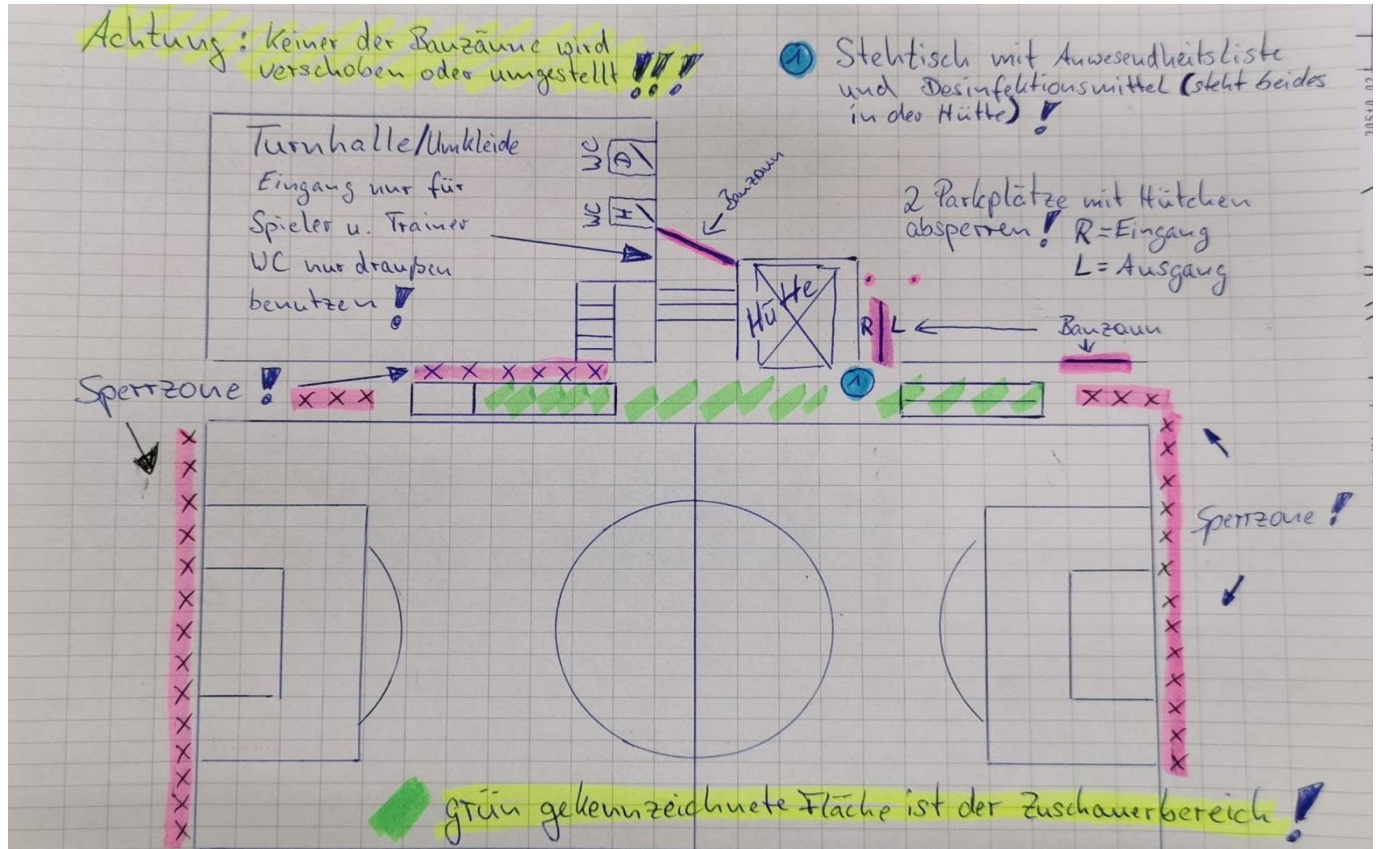 Achtung: Keiner der Bauzäune wird
verschoben oder umgestellt!!!
1 Stehtisch mit Anwesendheitsliste
und Desinfektionsmittel (steht beides
in der Hütte)!
Turnhalle/Umkleide
Eingang nur für
Spieler u. Trainer
WC nur draußen
benutzen!
WC D
WC H
Bauzaun
2 Parkplätze mit Hütchen
absperren! R=Eingang
L=Ausgang
Hütte
R L
Bauzaun
Sperrzone!
x x x x x x
x x x
1
x x x
Sperrzone!
grün gekennzeichnete Fläche ist der Zuschauerbereich!